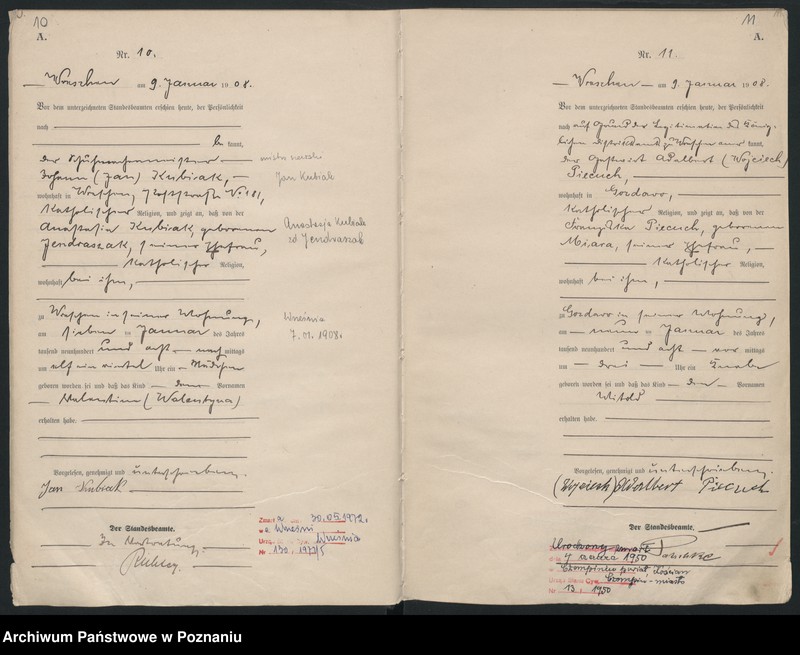 10
A.
Nr. 10.
Wreschen am 9. Januar 1908.
Vor dem unterzeichneten Standesbeamten erschien heute, der Persönlichkeit
nach
be kannt,
der Schuhmachermeister
Johann (Jan) Kubiak,
wohnhaft in Wreschen, Poststraße No 181,
Katholischer Religion, und zeigt an, daß von der
Anastasia Kubiak geborenen
Jendraszak, seiner Ehefrau,
Katholischer Religion,
wohnhaft bei ihm,
zu Wreschen in seiner Wohnung,
am sieben ten Januar des Jahres
tausend neunhundert und acht nach mittags
um elf ein viertel Uhr ein Mädchen
geboren worden sei und daß das Kind den Vornamen
Valentina (Walentyna)
erhalten habe.
Vorgelesen, genehmigt und unterschrieben.
Jan Kubiak
Der Standesbeamte.
In Vertretung.
Jan Kubiak
Anastazja Kubiak
zd Jendraszak
Września
7.01.1908.
30.05.1972.
w Wrześni
Września
Nr 130. 1972/S
11
A.
Nr. 11.
Wreschen am 9. Januar 1908.
Vor dem unterzeichneten Standesbeamten erschien heute, der Persönlichkeit
nach auf Grund der Legitimation des König-
lichen Distriktsamts zu Wreschen aner kannt,
der Gastwirt Adalbert (Wojciech)
Piecuch,
wohnhaft in Gozdowo,
Katholischer Religion, und zeigt an, daß von der
Franziska Piecuch, geborenen
Misara, seiner Ehefrau,
Katholischer Religion,
wohnhaft bei ihm,
zu Gozdowo in seiner Wohnung,
am neun ten Januar des Jahres
tausend neunhundert und acht vor mittags
um drei Uhr ein Knabe
geboren worden sei und daß das Kind den Vornamen
Witold
erhalten habe.
Vorgelesen, genehmigt und unterschrieben.
(Wojciech) Adalbert Piecuch
Der Standesbeamte.
7 marca 1950
Czempiniu powiat Kościan
Czempin-miasto
Nr 13 1950
Archiwum Państwowe w Poznaniu